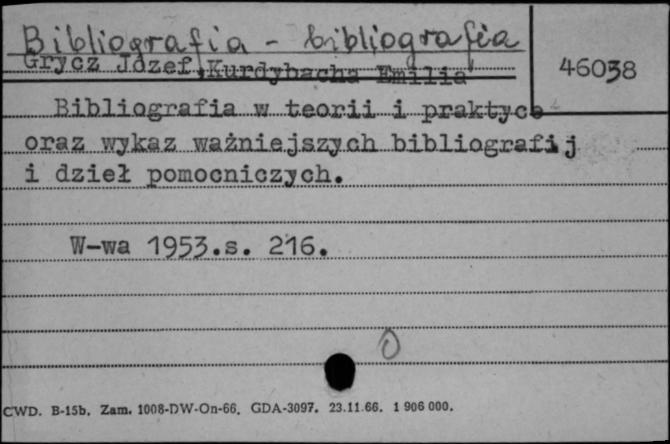 Bibliografia - bibliografia
46038
Grycz Józef, Kurdybacha Emilia
Bibliografia w teorii i praktyce
oraz wykaz ważniejszych bibliografij
i dzieł pomocniczych.
W-wa 1953.s. 216.
CWD. B-15b. Zam. 1008-DW-On-66. GDA-3097. 23.11.66. 1 906 000.